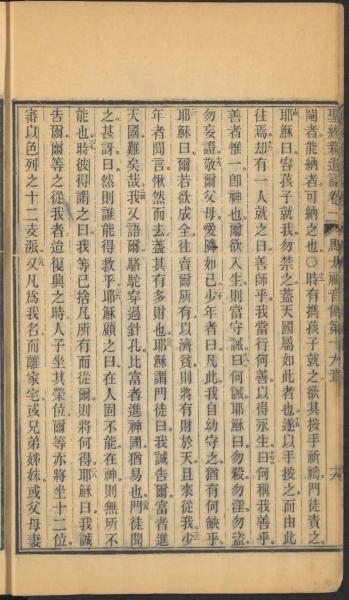 聖經新遺詔卷一 馬太福音傳第十九章 十六
閹者能納者可納之也〇時有攜孩子就之欲其按手祈禱門徒責之
耶穌曰容孩子就我勿禁之蓋天國屬如此者也遂以手按之而由此
往焉却有一人就之曰善師乎我當行何善以得永生曰何稱我善乎
善者惟一卽神也爾欲入生則當守誡曰何誡耶穌曰勿殺勿淫勿盜
勿妄證敬爾父母愛隣如己少年者曰凡此我自幼守之猶有何缺乎
耶穌曰爾若欲成全往賣爾所有以濟貧則將有財於天且來從我少
年者聞言愀然而去蓋其有多財也耶穌謂門徒曰我誠告爾富者進
天國難矣哉我又語爾駱駝穿過針孔比富者進神國猶易也門徒聞
之甚訝曰然則誰能得救乎耶穌顧之曰在人固不能在神則無所不
能也時彼得謂之曰我等已捨凡所有而從爾則將何得耶穌曰我誠
吿爾爾等之從我者迨復興之時人子坐其榮位爾等亦將坐十二位
審以色列之十二支派又凡爲我名而離家宅或兄弟姊妹或父母妻